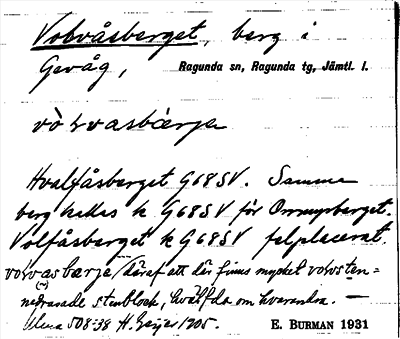 Volvåsberget, berg i
Gevåg, Ragunda sn, Ragunda tg, Jämtl. l.
Hvalfåsberget G68SV. Samma
berg kallas k G68SV för Ormmyrberget.
Volfåsberget k G68SV felplacerat.
däraf att där finns mycket
nedrasade stenblock, hvälfda om hvarandra. —
508-38 H. Geijer 1905. E. BURMAN 1931